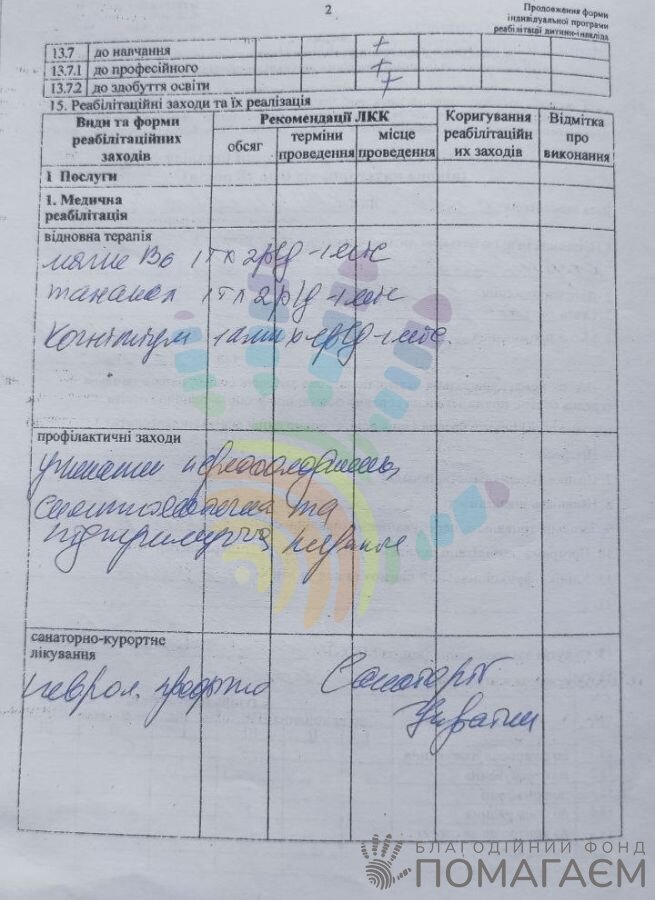 2
Продовження форми
індивідуальної програми
реабілітації дитини-інваліда
13.7 до навчання +
13.7.1 до професійного +
13.7.2 до здобуття освіти +
15. Реабілітаційні заходи та їх реалізація
Види та форми реабілітаційних заходів
Рекомендації ЛКК
обсяг
терміни проведення
місце проведення
Коригування реабілітаційн их заходів
Відмітка про виконання
І Послуги
1. Медична реабілітація
відновна терапія
магне В6 1т х 2р/д -1міс
танакан 1т х 2р/д -1міс
когнітум
профілактичні заходи
уникати переохолодження,
та
підтримуюча
санаторно-курортне лікування
неврол. профілю
Санаторії
України
БЛАГОДІЙНИЙ ФОНД
ПОМАГАЄМ